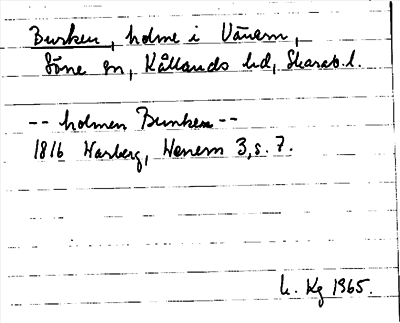 Bunken, holme i Vänern,
Söne sn, Kållands hd, Skarab. l.
-- holmen Bunken --
1816 Warberg, Wenern 3, s. 7.
L. Kg 1965.